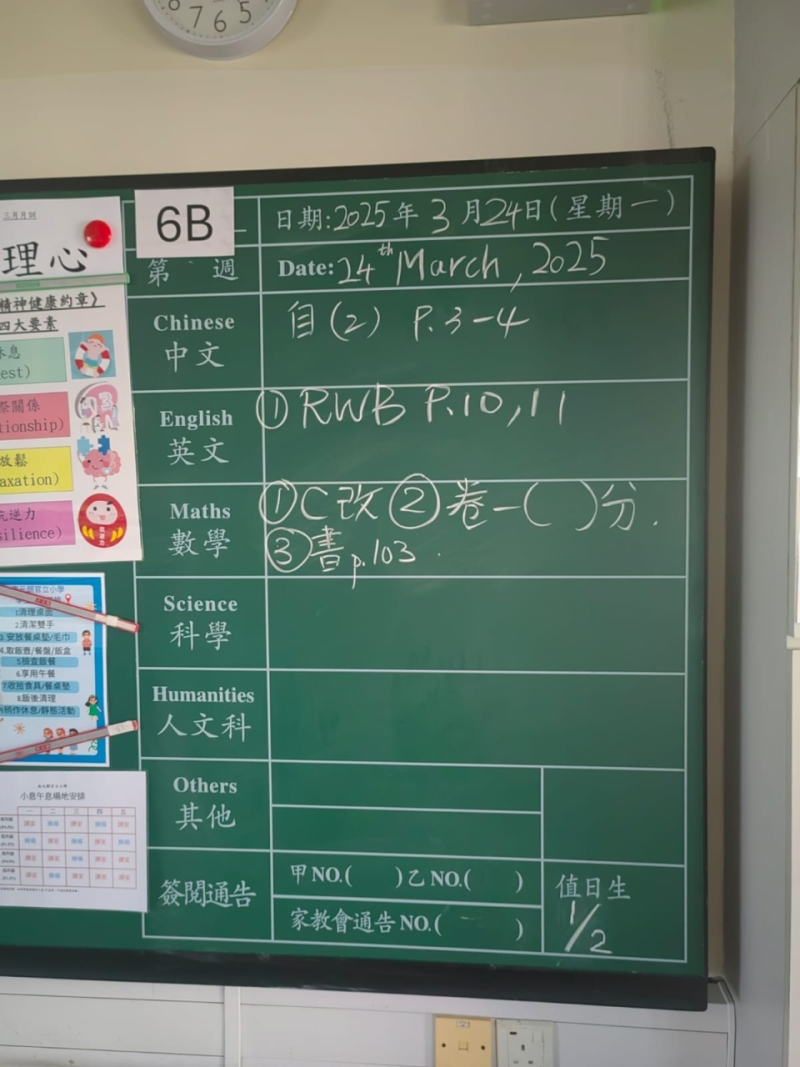 8 7 6 5
三月月訓
理心
精神健康約章》
四大要素
休息
est)
際關係
tionship)
放鬆
axation)
抗逆力
silience)
6B
日期:2025年3月24日(星期一)
第 週
Date: 24th March, 2025
Chinese
中文
自(2) P.3-4
English
英文
① RWB P.10,11
Maths
數學
①C改②卷一( )分.
③書p.103.
Science
科學
Humanities
人文科
Others
其他
簽閱通告
甲NO.( )乙NO.( )
家教會通告NO.( )
值日生
1/2
官立小學
1.清理桌面
2.清潔雙手
3.安放餐桌墊/毛巾
4.取飯壺/餐盤/飯盒
5.檢查飯餐
6.享用午餐
7.收拾食具/餐桌墊
8.飯後清理
稍作休息/靜態活動
小息午息場地安排
一 二 三 四 五